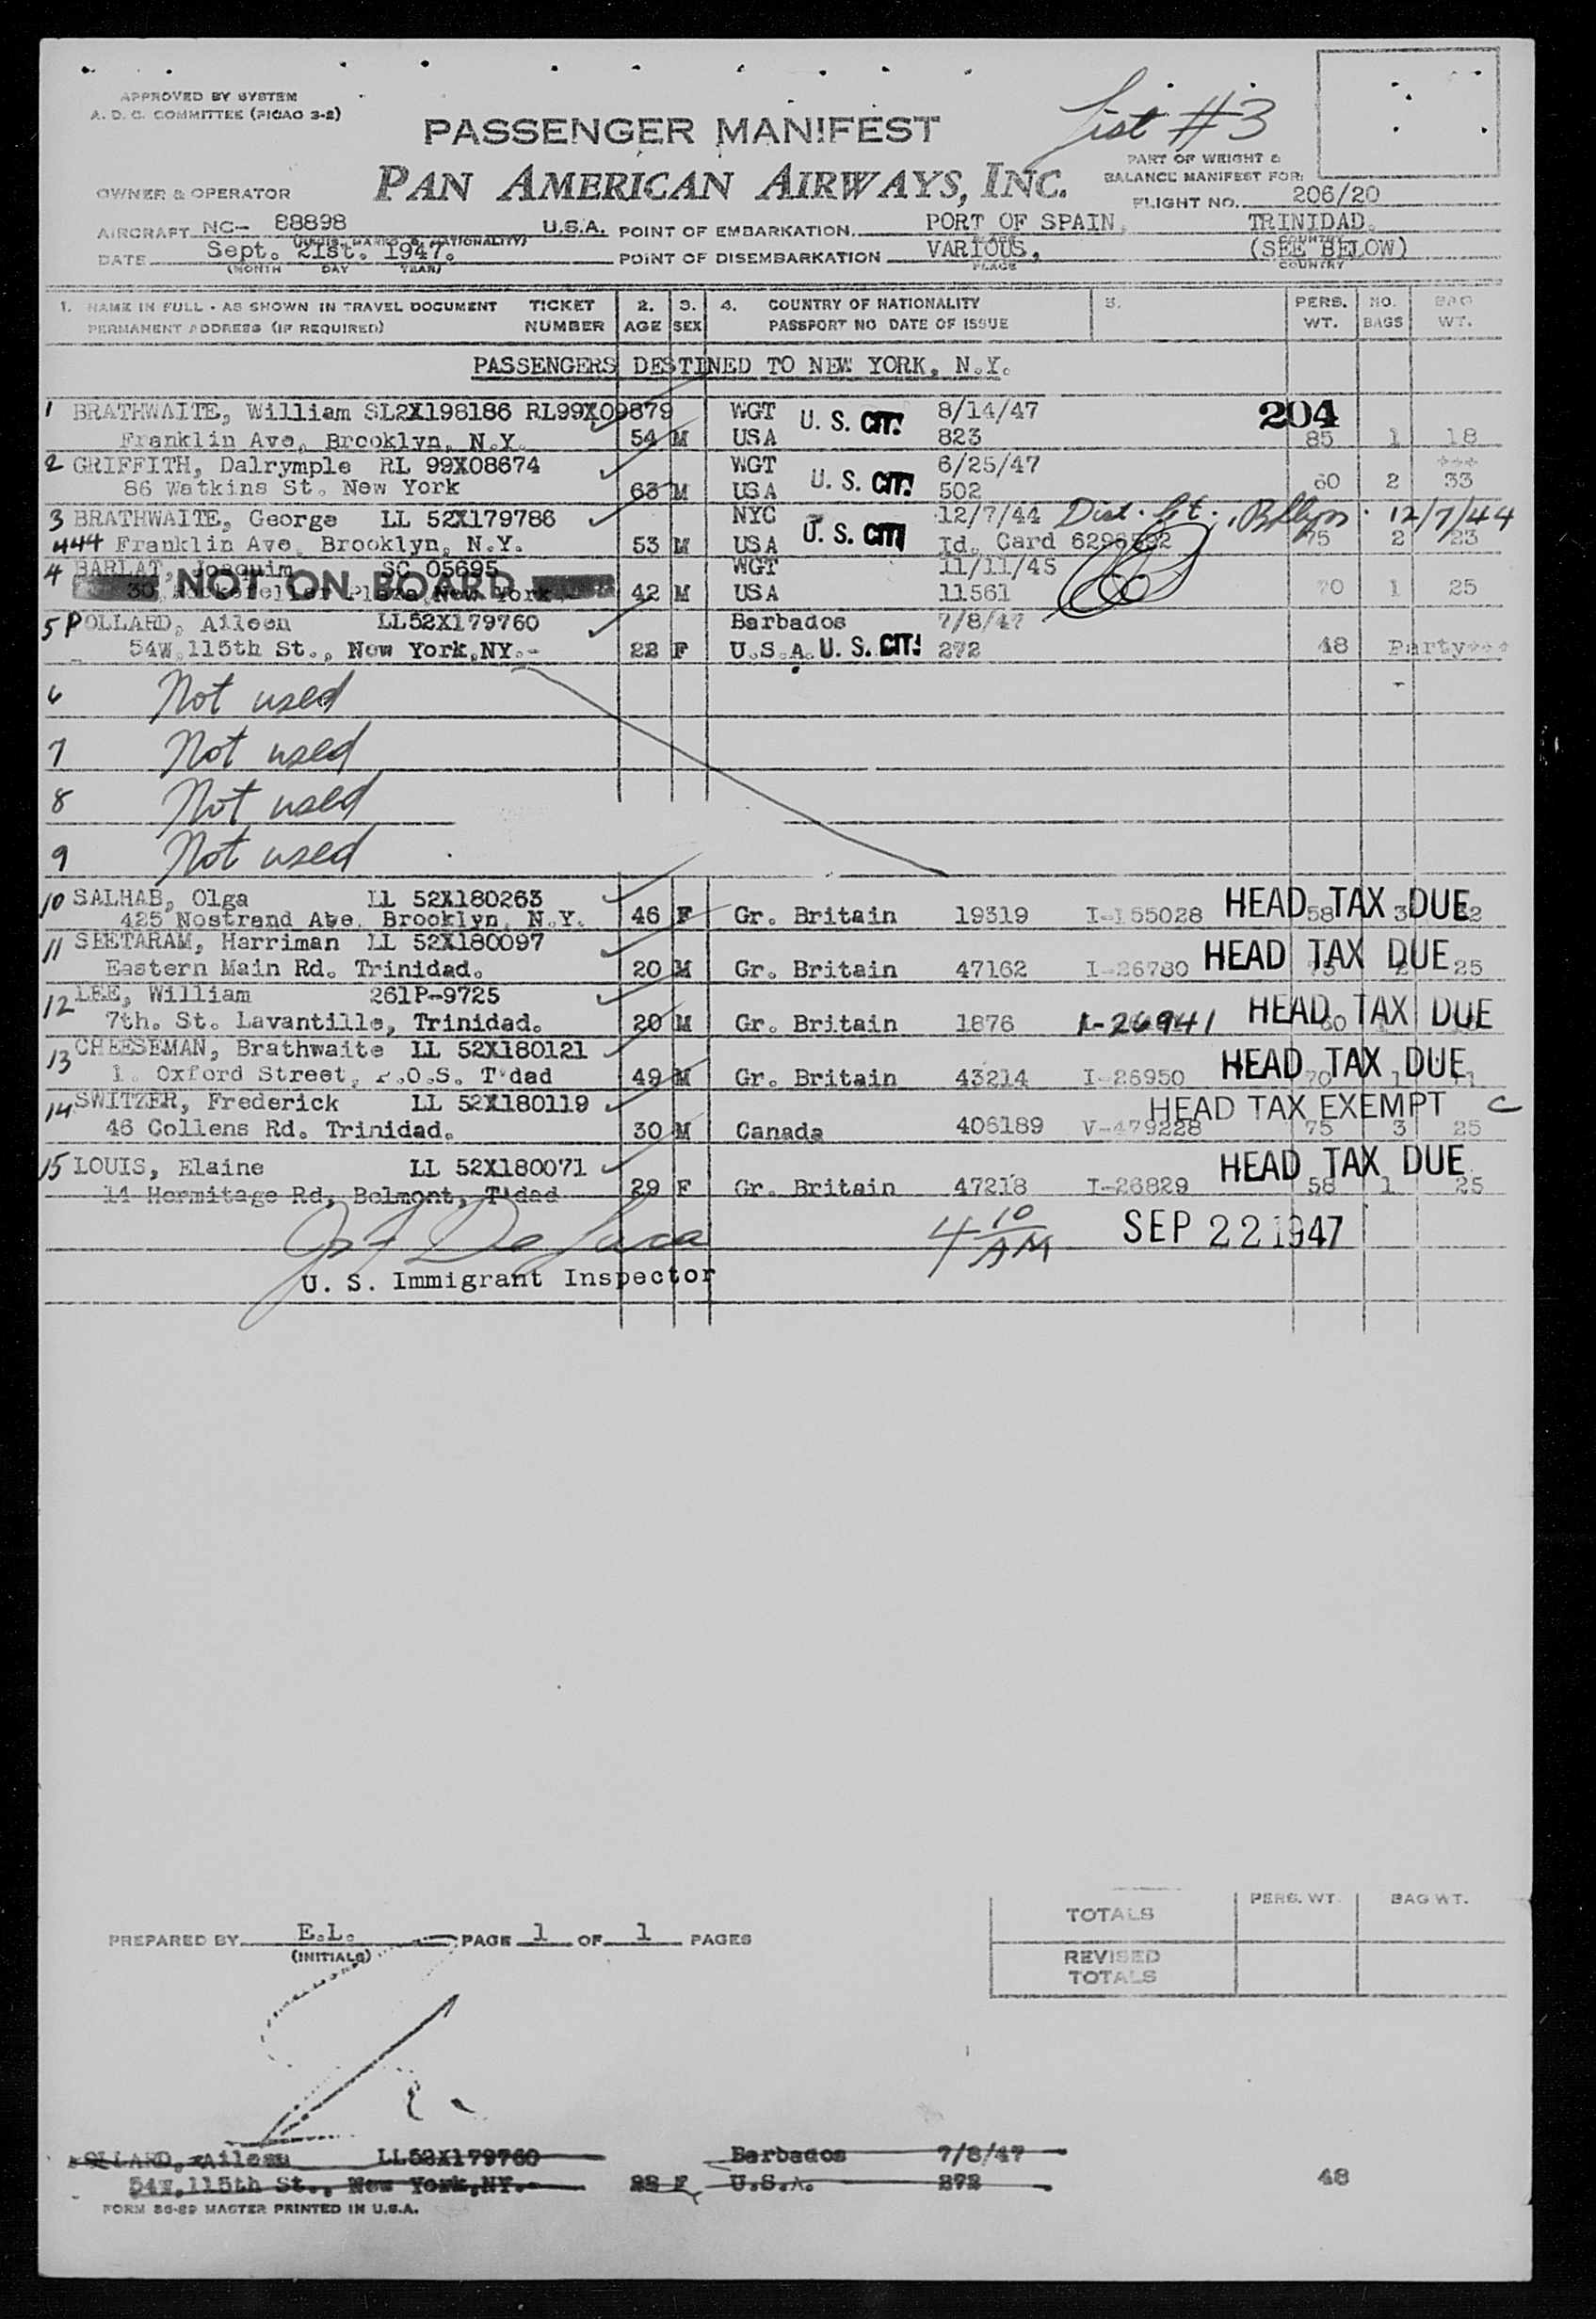 APPROVED BY SYSTEM
A. D. C. COMMITTEE (PICAO 3-2)
PASSENGER MANIFEST
List #3
PART OF WEIGHT &
BALANCE MANIFEST FOR:
OWNER & OPERATOR
PAN AMERICAN AIRWAYS, INC.
FLIGHT NO. 206/20
AIRCRAFT NC- 88898 U.S.A. POINT OF EMBARKATION PORT OF SPAIN, TRINIDAD.
DATE Sept. 21st. 1947. POINT OF DISEMBARKATION VARIOUS, (SEE BELOW)
(MONTH DAY YEAR) PLACE COUNTRY
1. NAME IN FULL - AS SHOWN IN TRAVEL DOCUMENT TICKET 2. 3. 4. COUNTRY OF NATIONALITY 5. PERS. NO. BAG
PERMANENT ADDRESS (IF REQUIRED) NUMBER AGE SEX PASSPORT NO DATE OF ISSUE WT. BAGS WT.
PASSENGERS DESTINED TO NEW YORK, N.Y.
1 BRATHWAITE, William SL2X198186 RL99X09879 WGT U. S. CIT. 8/14/47 204
Franklin Ave, Brooklyn, N.Y. 54 M USA 823 85 1 18
2 GRIFFITH, Dalrymple RL 99X08674 WGT U. S. CIT. 6/25/47
86 Watkins St. New York 63 M USA 502 60 2 33
3 BRATHWAITE, George LL 52X179786 NYC U. S. CIT 12/7/44 Dist. Ct., Bklyn. 12/7/44
444 Franklin Ave, Brooklyn, N.Y. 53 M USA Id. Card 75 2 23
4 BARLAT, Joaquim SC 05695 WGT 11/11/45
NOT ON BOARD
30, Rockefeller Plaza, New York 42 M USA 11561 70 1 25
5 POLLARD, Aileen LL52X179760 Barbados 7/8/47
54W.115th St., New York,NY.- 22 F U.S.A. U. S. CIT. 272 48 Party
6 Not used
7 Not used
8 Not used
9 Not used
10 SALHAB, Olga LL 52X180263
425 Nostrand Ave. Brooklyn, N.Y. 46 F Gr. Britain 19319 I-155028 HEAD TAX DUE 58 3
11 SEETARAM, Harriman LL 52X180097
Eastern Main Rd. Trinidad. 20 M Gr. Britain 47162 I-26780 HEAD TAX DUE 25
12 LEE, William 261P-9725
7th. St. Lavantille, Trinidad. 20 M Gr. Britain 1876 I-26941 HEAD TAX DUE
13 CHEESEMAN, Brathwaite LL 52X180121
1. Oxford Street, P.O.S. T'dad 49 M Gr. Britain 43214 I-26950 HEAD TAX DUE 70 1
14 SWITZER, Frederick LL 52X180119 HEAD TAX EXEMPT C
46 Collens Rd. Trinidad. 30 M Canada 406189 V-479228 75 3 25
15 LOUIS, Elaine LL 52X180071 HEAD TAX DUE
14 Hermitage Rd, Belmont, T'dad 29 F Gr. Britain 47218 I-26829 58 1 25
4 10 AM SEP 22 1947
U. S. Immigrant Inspector
TOTALS PERS. WT. BAG WT.
PREPARED BY E.L. PAGE 1 OF 1 PAGES
(INITIALS)
REVISED
TOTALS
OLLARD, Aileen LL52X179760 Barbados 7/8/47
54W,115th St., New York,NY.- 22 F U.S.A. 272 48
FORM 86-89 MASTER PRINTED IN U.S.A.